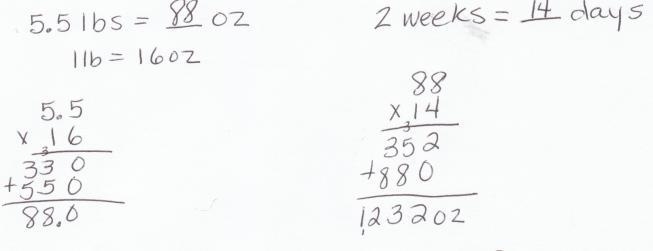 5.5 lbs = 88 oz
1 lb = 16 oz
5.5
x 16
3
33 0
+55 0
88.0
2 weeks = 14 days
88
x 14
3
352
+880
1232 oz
1